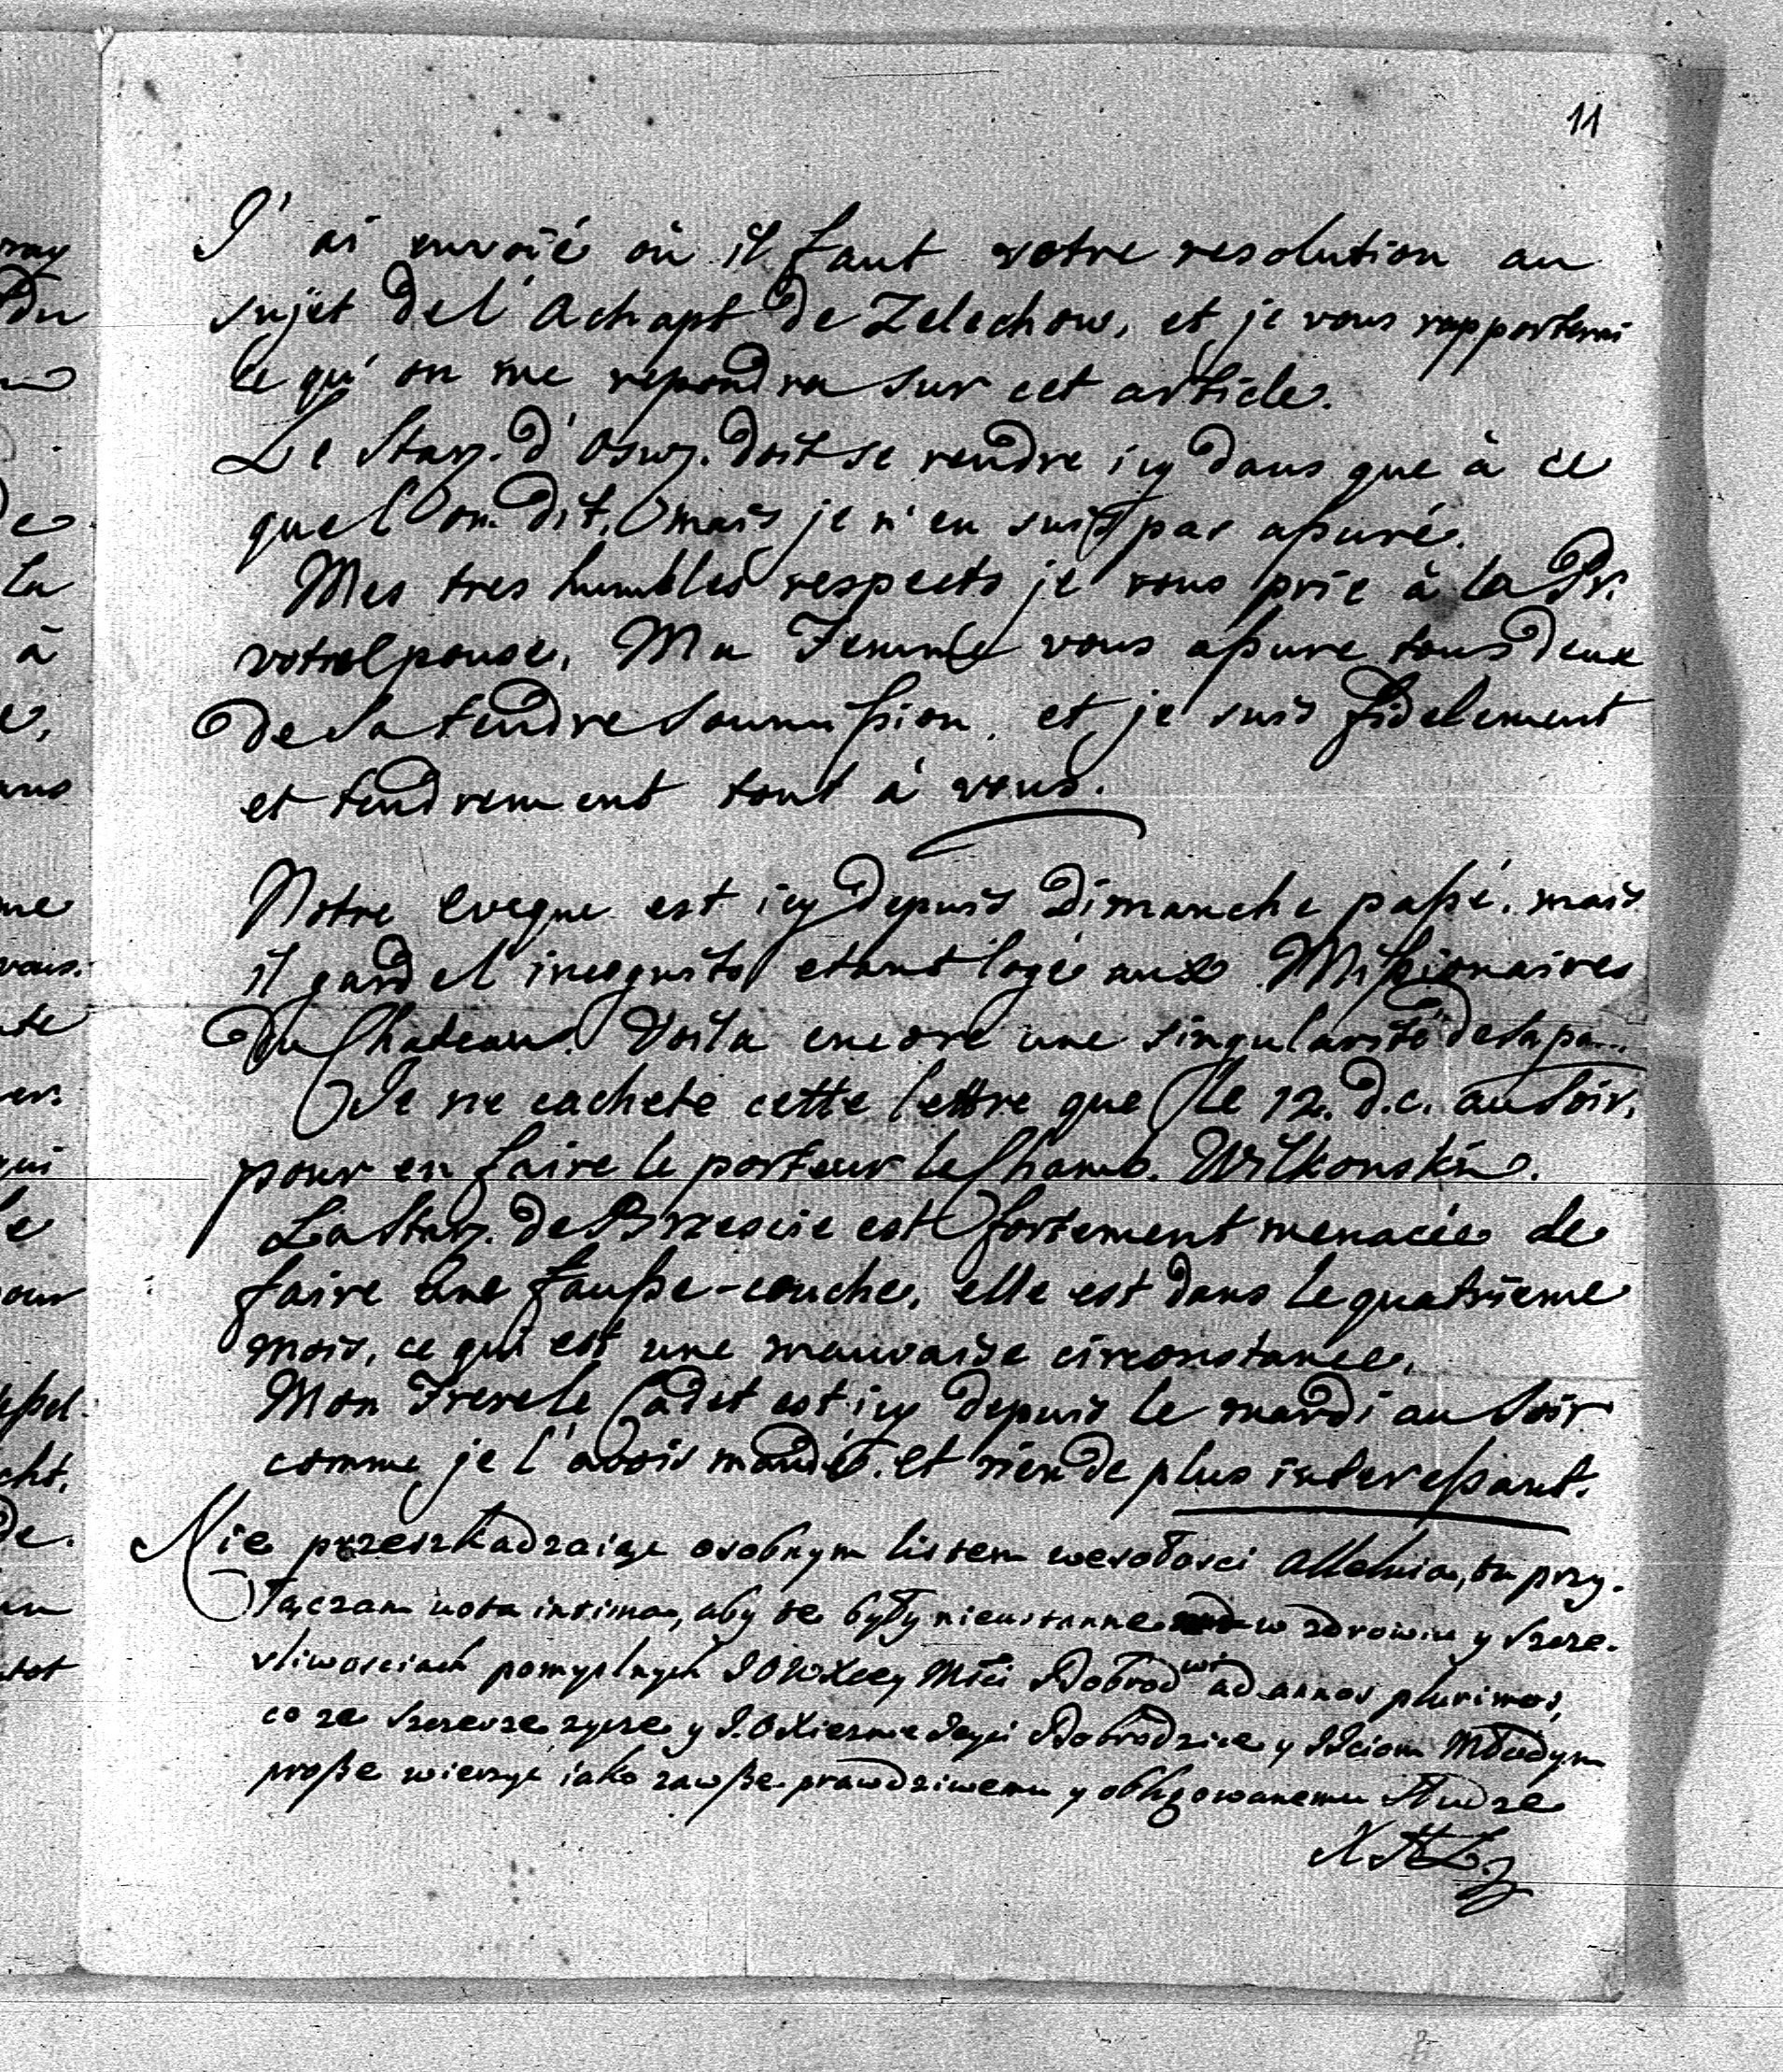 11
J'ai envoié où il faut votre resolution au
sujet de l'Achapt de Zelechow, et je vous rapporterai
ce qu'on me repondra sur cet article.
Le Star. d'Osw. doit se rendre icy dans que à ce
que l'on dit, mais je n'en suis pas assuré.
Mes tres humbles respects je vous prie à la Pr.
votre Epouse, Ma Femme vous assure tous deux
de sa tendre soumission, et je suis fidelement
et tendrement tout à vous.
Notre Eveque est icy depuis Dimanche passé, mais
il garde l'incognito etant logé aux Missionaires
du Chateau. Voila encore une singularité de sa pa...
Je ne cachete cette lettre que le 12. d.c. au soir,
pour en faire le porteur le Chamb. Wilkonski.
La Star. de Brzescie est fortement menacée de
faire une fausse-couche, elle est dans le quatrieme
mois, ce qui est une mauvaise circonstance.
Mon Frere le Cadet est icy depuis le mardi au soir
comme je l'avois mandé. et rien de plus interessant.
Nie przeszkadzaiąc osobnym listem wesołosci Alleluia, tu przy-
łączam vota intima, aby te były nieustanne w zdrowiu y szczę-
sliwosciach pomyslnych JOWXcey Mści Dobrodwi ad annos plurimos,
co ze szczerze zyczę y J.O Xieznie Jeyci Dobrodzice y JJciom Młodym
proszę wierzyć iako zawsze prawdziwemu y obligowanemu słudze